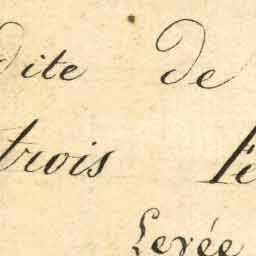 dite de
trois fe
Levée